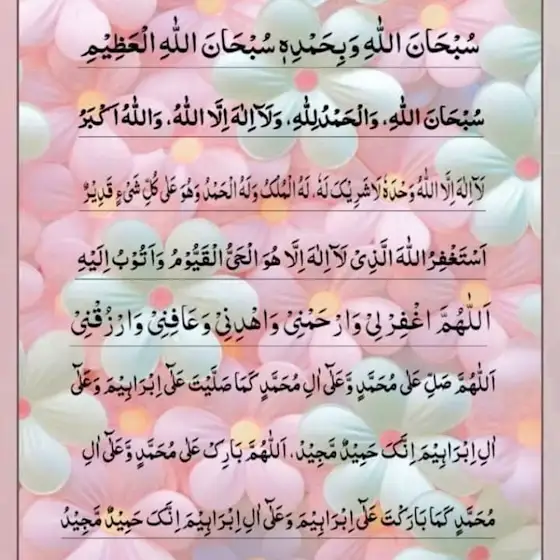 سُبْحَانَ اللّٰهِ وَبِحَمْدِهٖ سُبْحَانَ اللّٰهِ الْعَظِيْمِ
سُبْحَانَ اللّٰهِ، وَالْحَمْدُ لِلّٰهِ، وَلَآ اِلٰهَ اِلَّا اللّٰهُ، وَاللّٰهُ اَكْبَرُ
لَآ اِلٰهَ اِلَّا اللّٰهُ وَحْدَهٗ لَا شَرِيْكَ لَهٗ، لَهُ الْمُلْكُ وَلَهُ الْحَمْدُ وَهُوَ عَلٰى كُلِّ شَیْءٍ قَدِيْرٌ
اَسْتَغْفِرُ اللّٰهَ الَّذِیْ لَآ اِلٰهَ اِلَّا هُوَ الْحَیُّ الْقَيُّوْمُ وَاَتُوْبُ اِلَيْهِ
اَللّٰهُمَّ اغْفِرْ لِیْ وَارْحَمْنِیْ وَاهْدِنِیْ وَعَافِنِیْ وَارْزُقْنِیْ
اَللّٰهُمَّ صَلِّ عَلٰى مُحَمَّدٍ وَّعَلٰٓى اٰلِ مُحَمَّدٍ كَمَا صَلَّيْتَ عَلٰٓى اِبْرَاهِيْمَ وَعَلٰٓى
اٰلِ اِبْرَاهِيْمَ اِنَّكَ حَمِيْدٌ مَّجِيْدٌ، اَللّٰهُمَّ بَارِكْ عَلٰى مُحَمَّدٍ وَّعَلٰٓى اٰلِ
مُحَمَّدٍ كَمَا بَارَكْتَ عَلٰٓى اِبْرَاهِيْمَ وَعَلٰٓى اٰلِ اِبْرَاهِيْمَ اِنَّكَ حَمِيْدٌ مَّجِيْدٌ